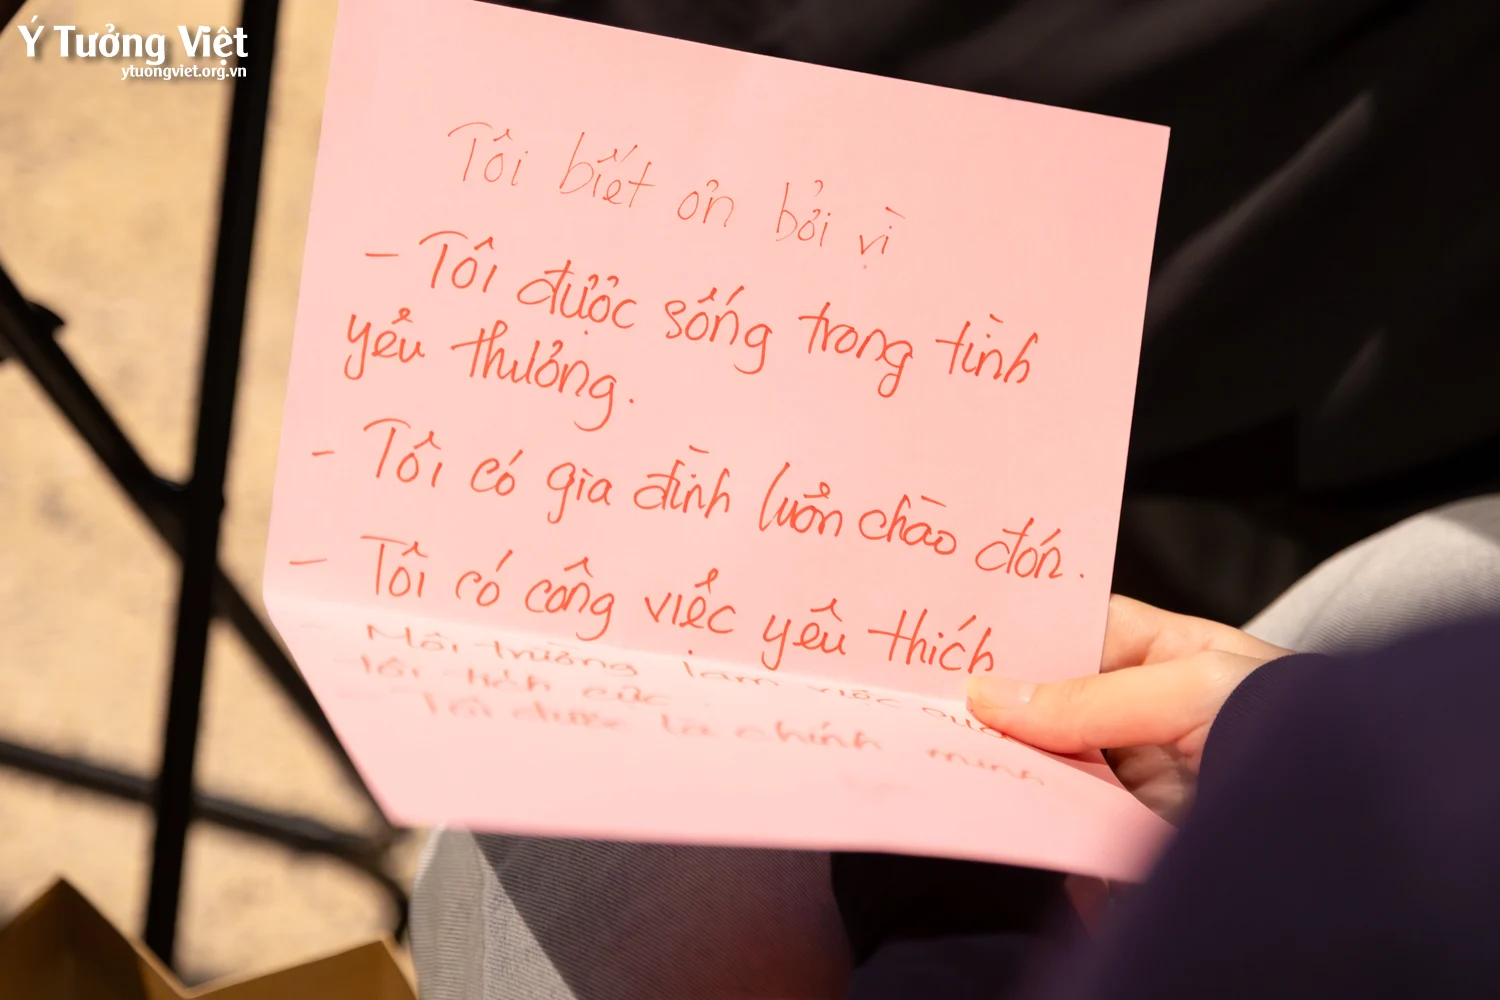 Ý Tưởng Việt
ytuongviet.org.vn
Tôi biết ơn bởi vì
- Tôi được sống trong tình
yêu thương.
- Tôi có gia đình luôn chào đón.
- Tôi có công việc yêu thích
- Môi trường làm việc
tôi tích cực.
- Tôi được là chính mình